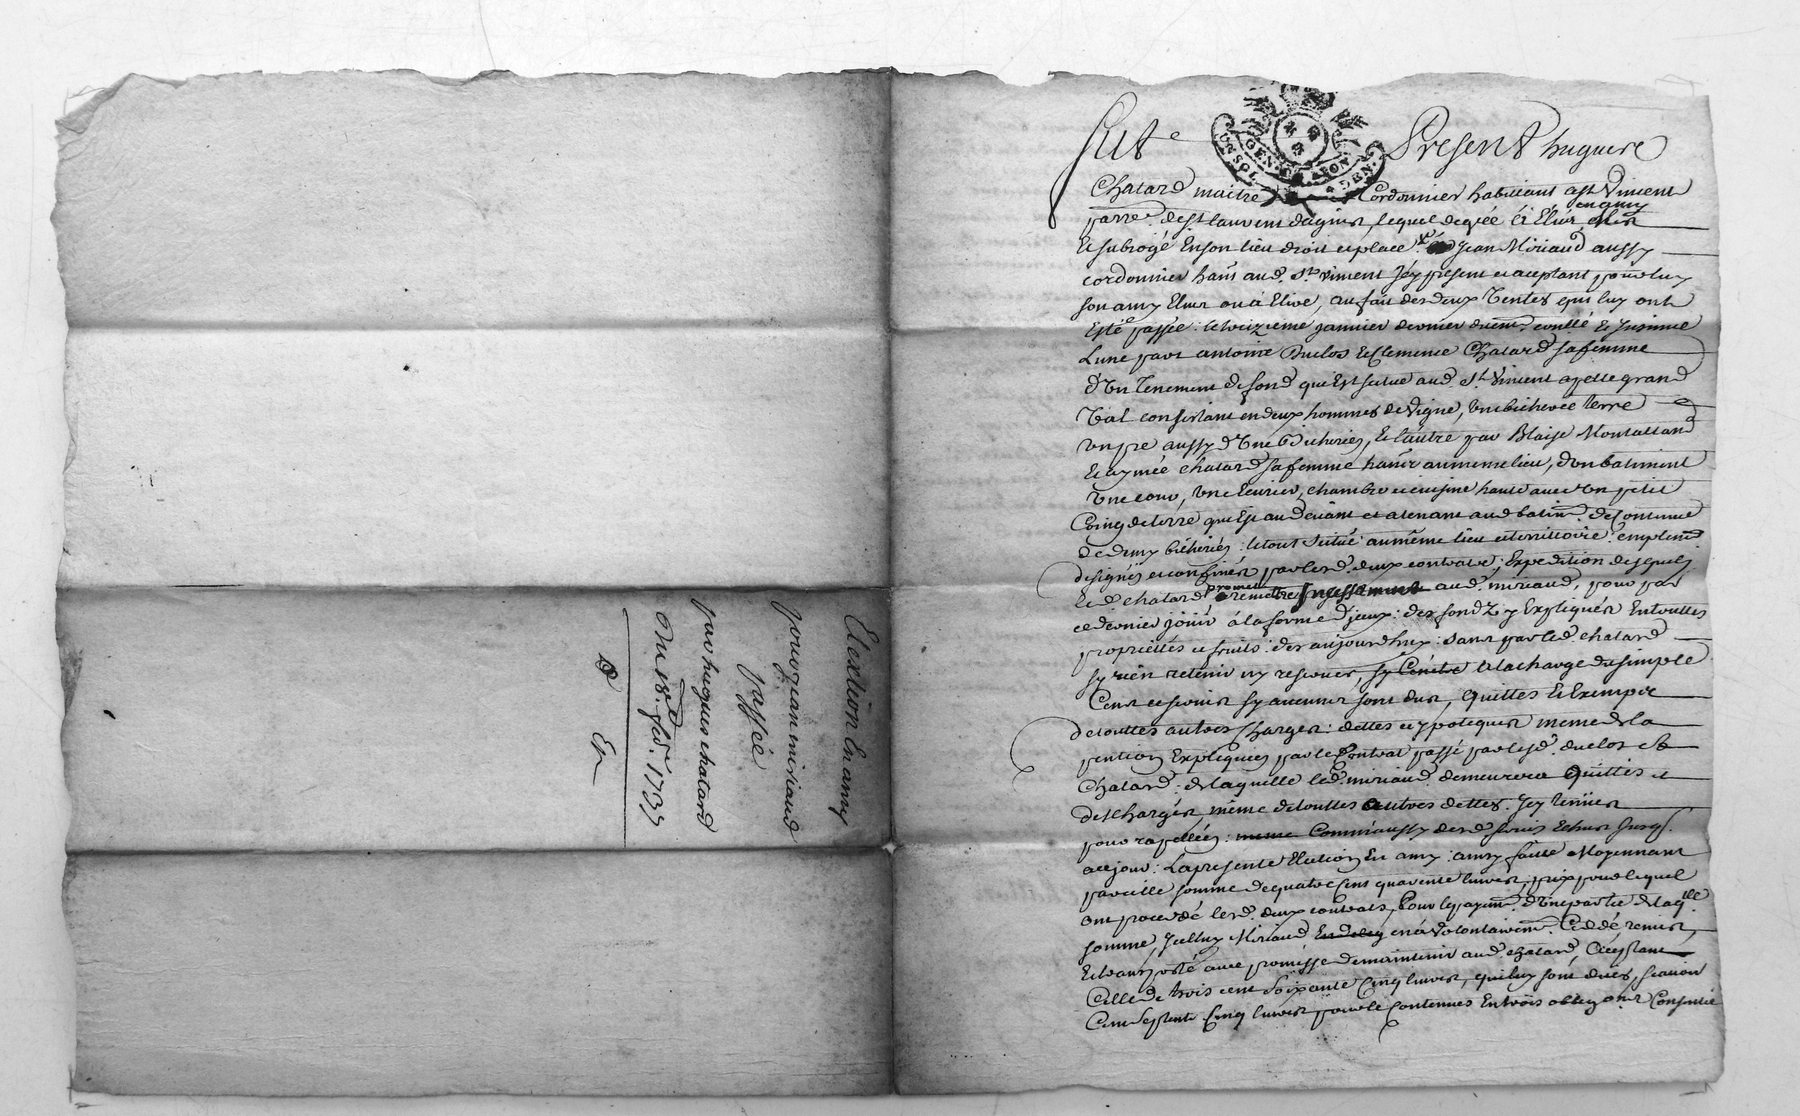 Election En amy
pour jean miriaud
passée
par hugues chatard
Du 18e. fer. 1735
En
fut Present hugues
UN SOL GEN. DEN.
Chatard maitre Cordonnier habittant a St Vincent
parre. de St laurent dagnis, lequel de gré à Elûr, en amy
Et subrogé En son lieu droit et place Jean Miriaud aussy
cordonnier hant. aud. St vincent Jcy present et aceptant pour luy
son amy Elûr ou à Elire, au fait des deux Ventes qui luy ont
Esté passée: le treizieme janvier dernier duemt. conllé et Jnsinué
Lune par antoine Duclos et Clemence Chatard sa femme
d'Un Tenement de fond qui Est situé aud. St Vincent apellé grand
Val consistant en deux hommes de Vigne, Une bicheree terre
un pre aussy d'Une bicherée, Et l'autre par Blaise Montalland
Et aymée chatard sa femme hants au meme lieu, d'un batiment
Une cour, Une Ecurier, chambre et cuisine haute avec Un petit
Coing de terre qui Est au devant et atenant aud batimt. de Contenue
de deux bicherées: le tout situé au même lieu et territoire
designés et confinés par lesd. deux contrats; Expedition desquels
led. chatard promet remettre Jncessament aud. miriaud, pour par
ce dernier jouir à la forme d'jeux: des fondz y Expliqués En touttes
proprietés et fruits: des aujourdhuy: sans par led chatard
sy rien retenir ny reserver, à la charge du simple
Cens et servis sy aucuns sont dus, quittes Et Exempts
de touttes autres Charges: dettes et ypoteques meme de la
pention Expliquée par le Contrat passé par lesd. duclos et
Chatard: de laquelle led. miriaud demeurera Quitte et
dechargés même de touttes autres dettes. Jcy tenües
pour rapellées: Comm'aussy desd. servis Echus Jusqs.
a ce jour: La presente Election En amy: amy faitte Moyennant
pareille somme de quatre Cens quarente livres, prix pour lequel
ont procedé lesd. deux contrats, Pour le payemt. d'Une partie de laqlle
somme, Jcelluy Miriaud à volontairemt. Cédé remis,
Et tranporté avec promesse de maintenir aud. chatard, aceptant
Celle de trois cent Soixante Cinq livres, qui luy sont dües, scavoir
Cent septente Cinq livres pour le Contenues En trois obligons. Consentie